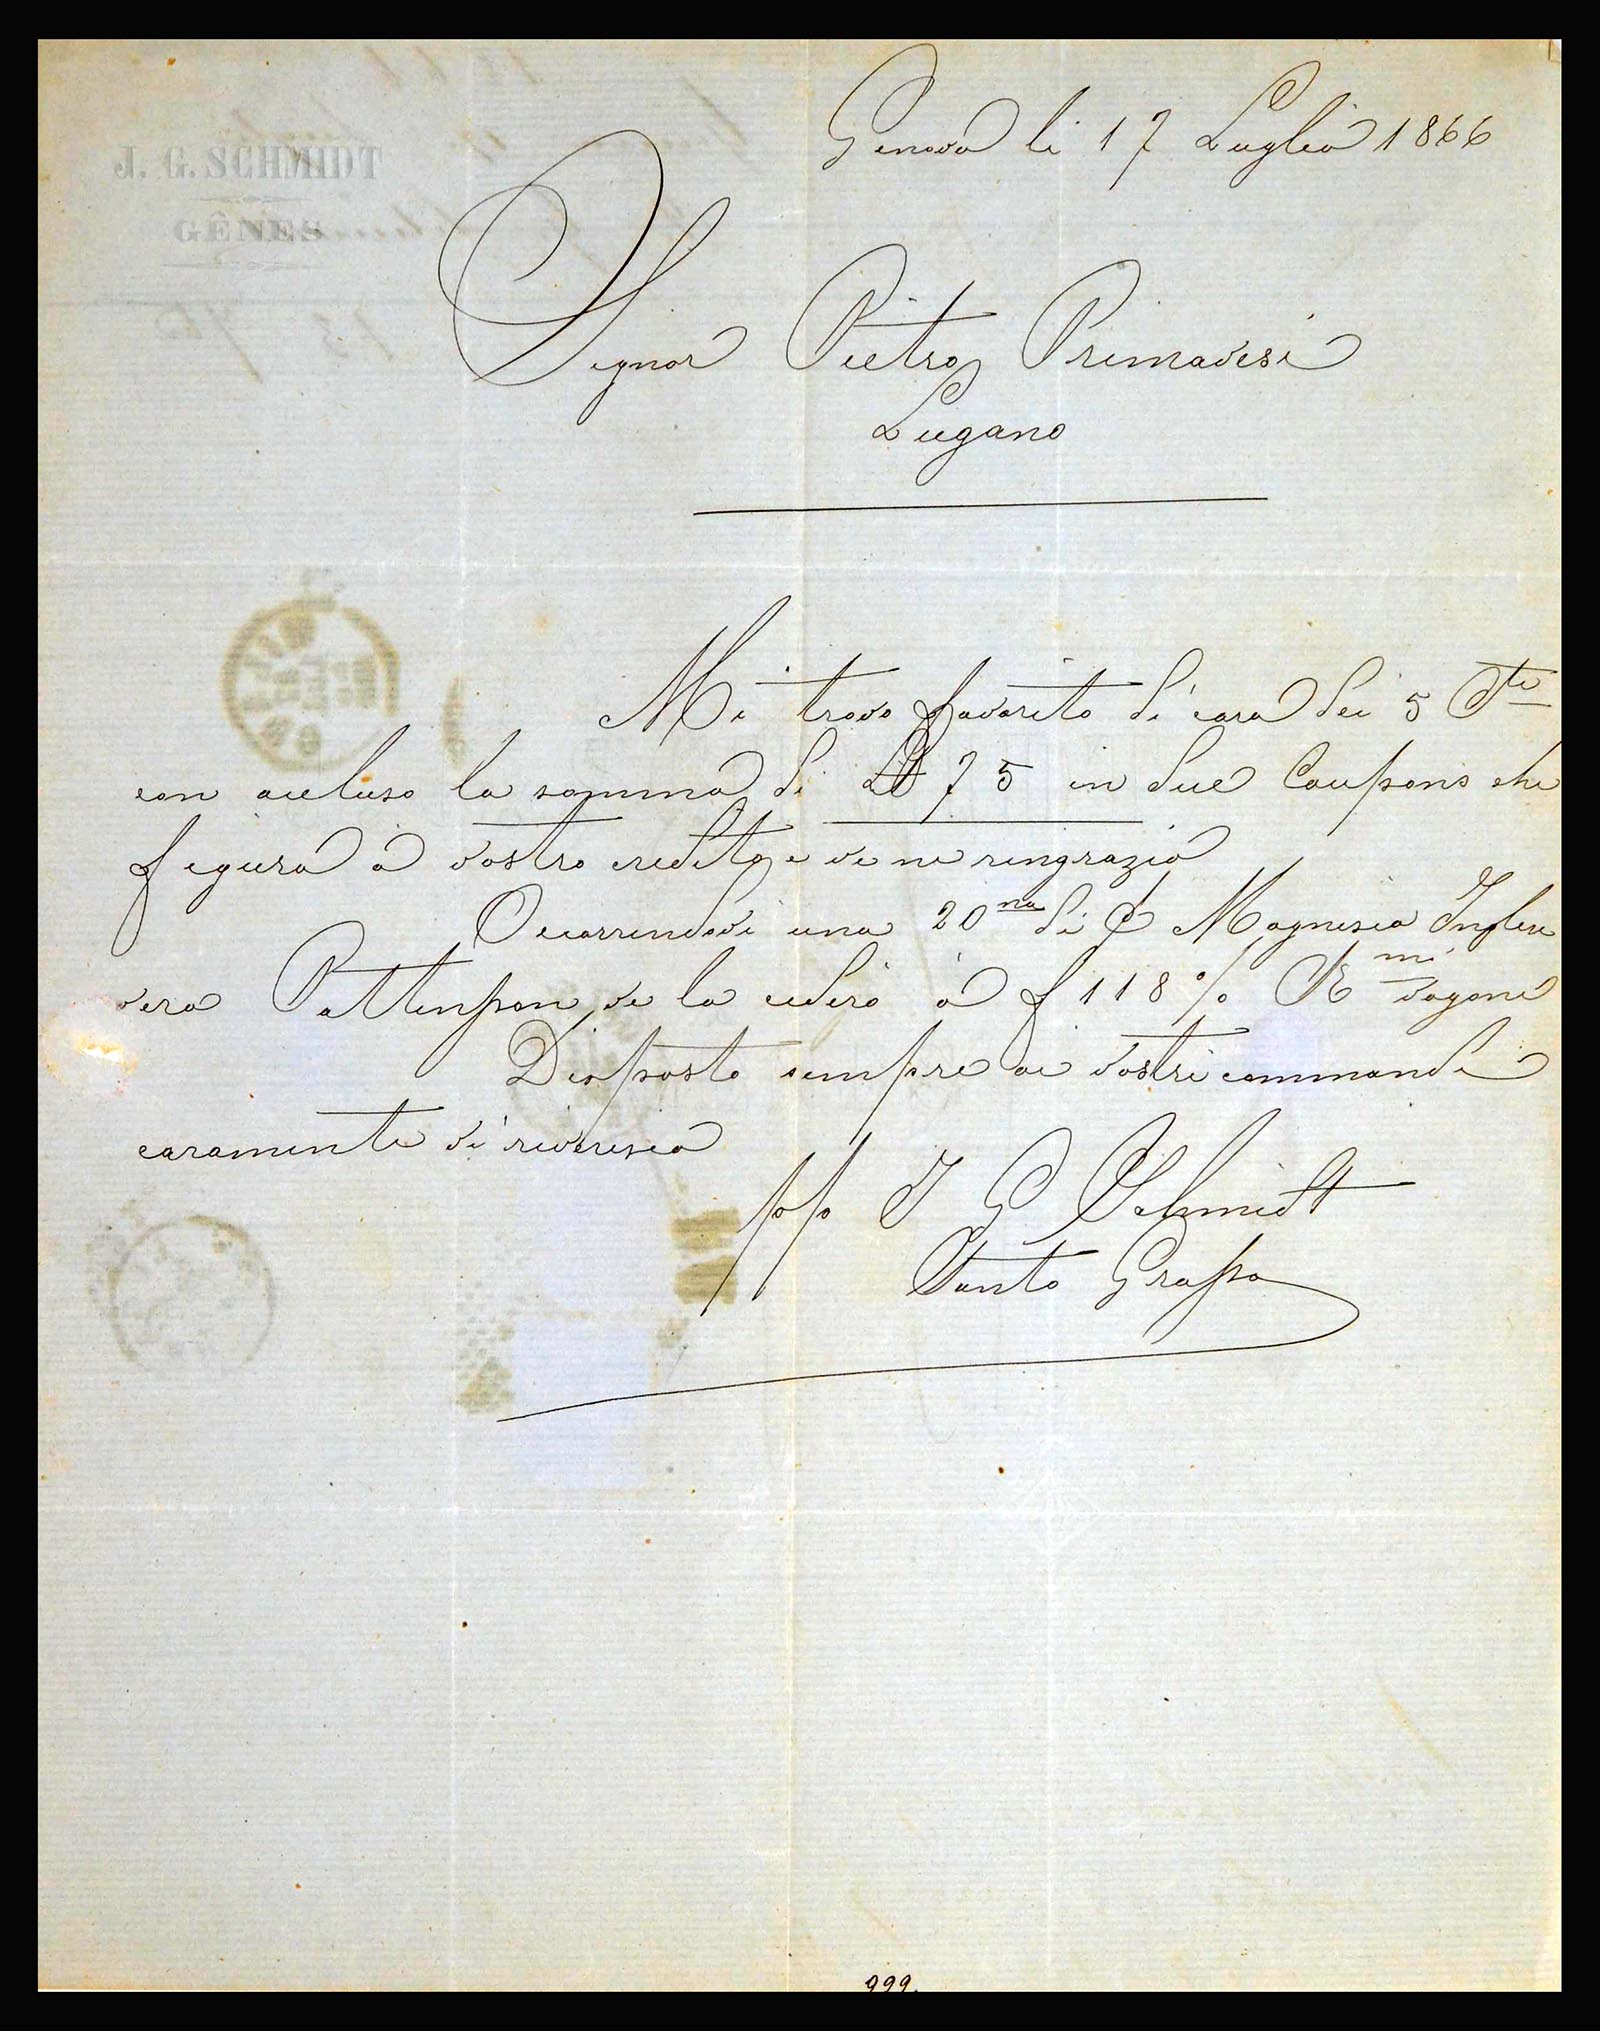 J. G. SCHMIDT
GÊNES
Genova li 17 Luglio 1866
Signor Pietro Primavesi
Lugano
Mi trovo favorito di cara dei 5 Cte
con accluso la somma di 75 in due Coupons che
figura a vostro credito e ve ne ringrazio
Occorrendovi una 20na di Magnesia Inglese
vera Pattenson ve la cederò a f 118 % vagone
Disposto sempre ai vostri commandi
caramente vi riverisco
pp J G Schmidt
Santo Grapa
999.